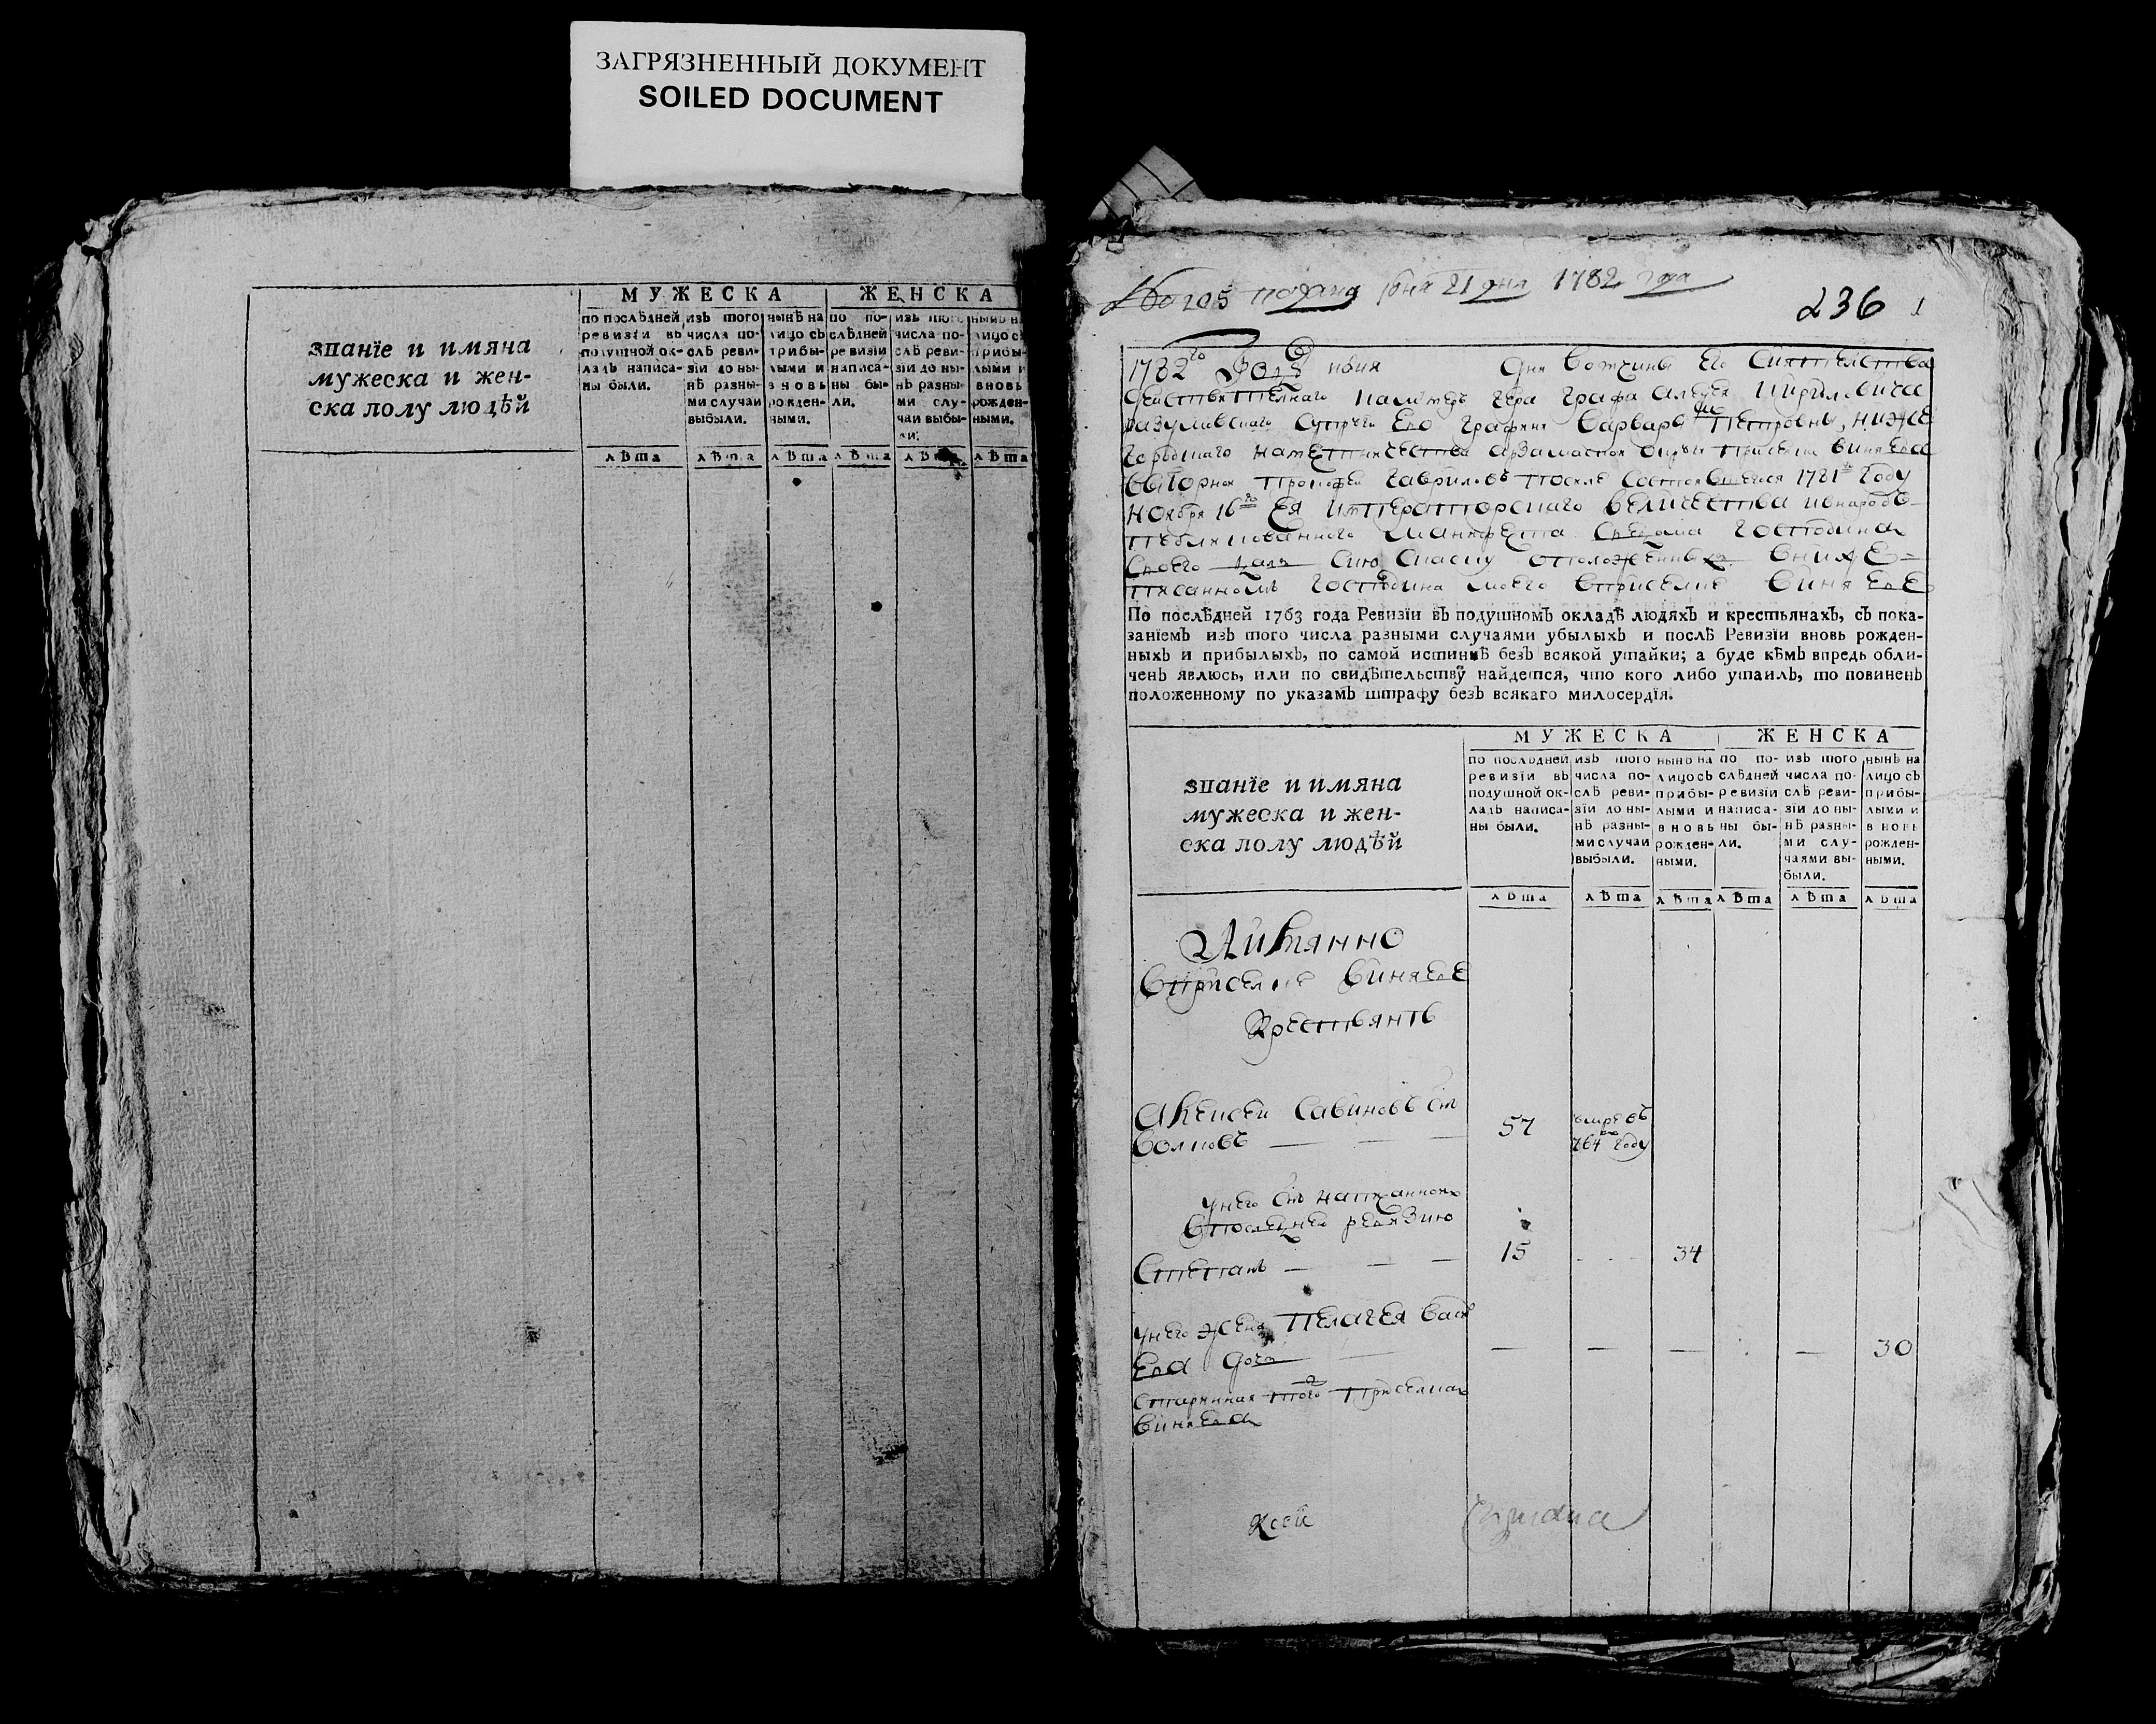 ЗАГРЯЗНЕННЫЙ ДОКУМЕНТ
SOILED DOCUMENT
званїе и имяна
мужеска и жен-
ска полу людѣй
МУЖЕСКА
ЖЕНСКА
по послѣдней
ревизїи въ
подушной ок-
ладъ написа-
ны были.
изъ того
числа по-
слѣ реви-
зїи до ны-
нѣ разны-
ми случаи
выбыли.
нынѣ на
лицо съ
прибы-
лыми и
вновь
рожден-
ными.
по по-
слѣдней
ревизїи
написа-
ны бы-
ли.
изъ того
числа по-
слѣ реви-
зїи до ны-
нѣ разны-
ми слу-
чаи выбы-
ли.
нынѣ на
лицо съ
прибы-
лыми и
вновь
рожден-
ными.
лѣта лѣта лѣта лѣта лѣта лѣта
205 подана 21 дня 1782 года
236 1
1782го Году июня дня вотчины Его Сиятелства
действителнаго камергера графа Алексея Кирилловича
разумовскаго супруги Ево графини Варвары Петровны, ниже
городскаго наместничества арзамаской округи приселка виняева
выборной Прокофей гавриловъ после состоявшегося 1781го году
ноября 16го Ея императорскаго величества и в народъ
публикованного манифеста господина
своего далъ сию сказку о положенныхъ в ниже
писанномъ господина моего в приселке виняеве
По послѣдней 1763 года Ревизїи въ подушномъ окладѣ людяхъ и крестьянахъ, съ пока-
занїемъ изъ того числа разными случаями убылыхъ и послѣ Ревизїи вновь рожден-
ныхъ и прибылыхъ, по самой истиннѣ безъ всякой утайки; а буде кѣмъ впредь обли-
ченъ явлюсь, или по свидѣтельству найдется, что кого либо утаилъ, то повиненъ
положенному по указамъ штрафу безъ всякаго милосердїя.
званїе и имяна
мужеска и жен-
ска полу людѣй
МУЖЕСКА
ЖЕНСКА
по послѣдней
ревизїи въ
подушной ок-
ладъ написа-
ны были.
изъ того
числа по-
слѣ реви-
зїи до ны-
нѣ разны-
ми случаи
выбыли.
нынѣ на
лицо съ
прибы-
лыми и
вновь
рожден-
ными.
по по-
слѣдней
ревизїи
написа-
ны бы-
ли.
изъ того
числа по-
слѣ реви-
зїи до ны-
нѣ разны-
ми слу-
чаями вы-
были.
нынѣ на
лицо съ
прибы-
лыми и
вновь
рожден-
ными.
лѣта лѣта лѣта лѣта лѣта лѣта
Имянно
в приселке виняеве
крестьянъ
Алексей Савиновъ снъ
волковъ — — — 57 умре въ
764мъ году
у него снъ написанной
в последнею ревизию
Степанъ — — — 15 - - 34
у него жена Пелагея васил
ева дочь — — — — — 30
старинная того приселка
виняева